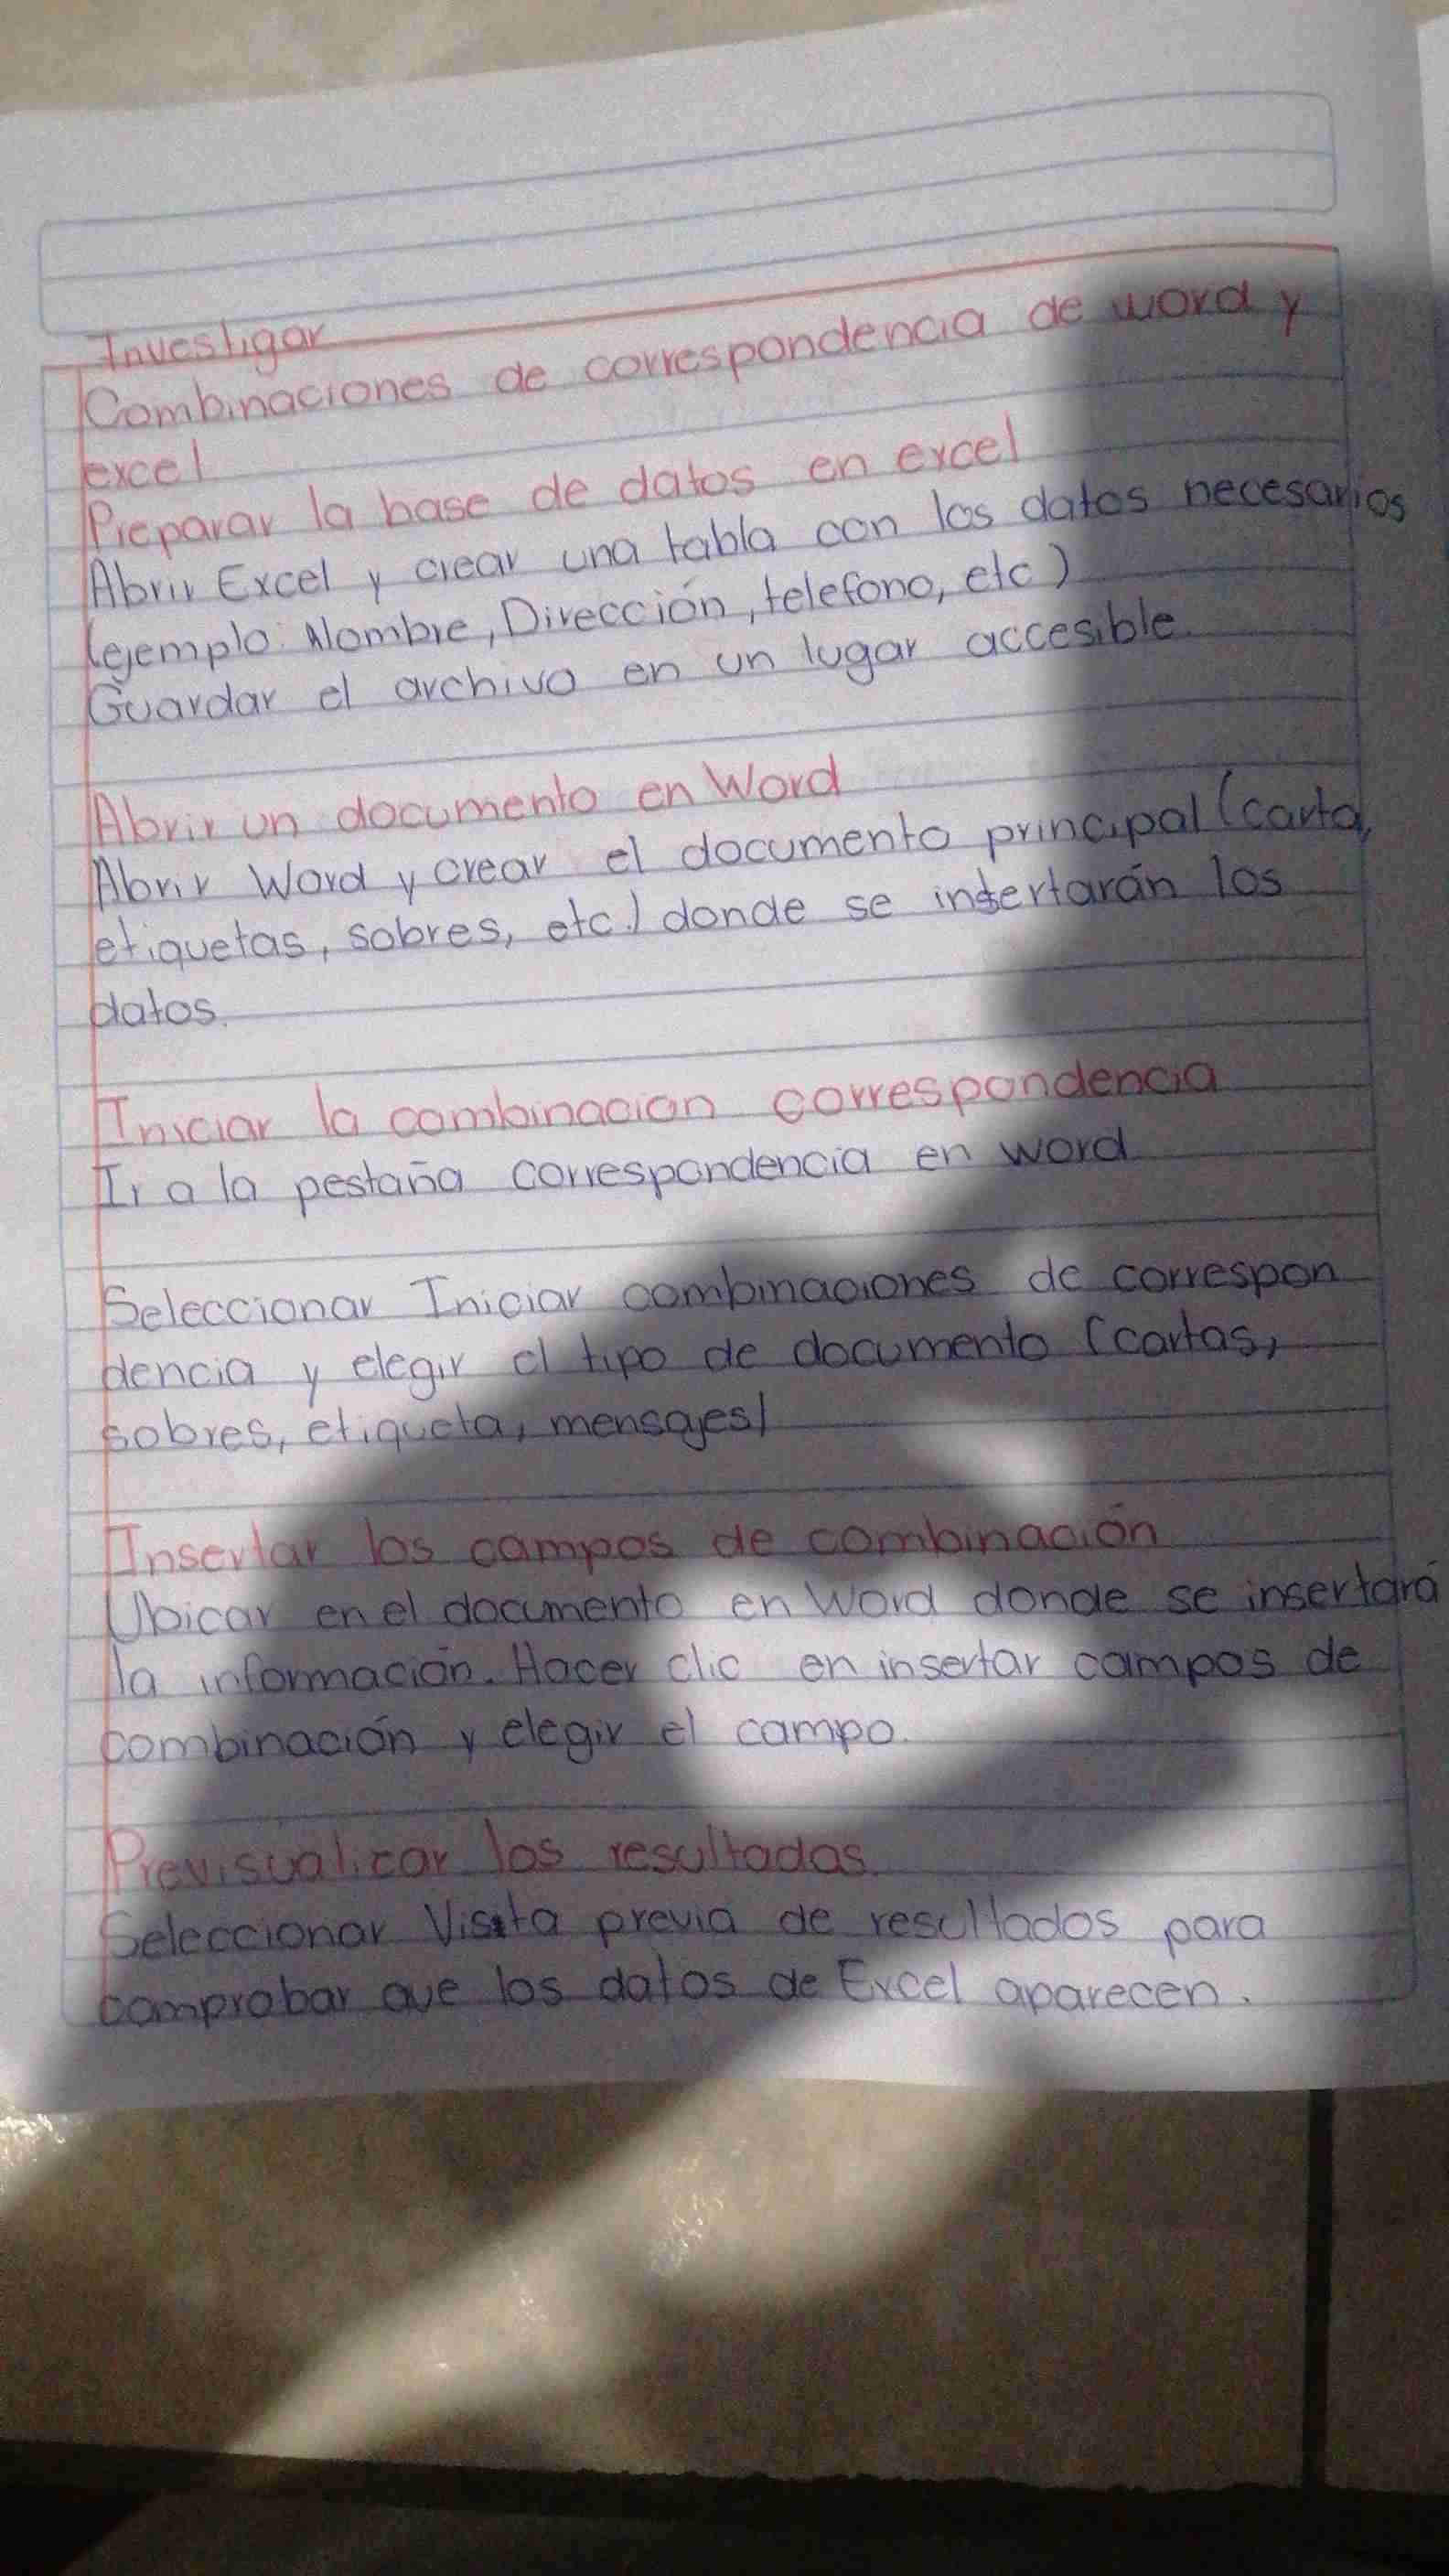 Investigar
Combinaciones de correspondencia de word y
excel
Preparar la base de datos en excel
Abrir Excel y crear una tabla con los datos necesarios
(ejemplo: Nombre, Dirección, telefono, etc)
Guardar el archivo en un lugar accesible.
Abrir un documento en Word
Abrir Word y crear el documento principal (carta,
etiquetas, sobres, etc.) donde se insertarán los
datos.
Iniciar la combinacion correspondencia
Ir a la pestaña correspondencia en word
Seleccionar Iniciar combinaciones de correspon
dencia y elegir el tipo de documento (cartas,
sobres, etiqueta, mensajes)
Insertar los campos de combinación
Ubicar en el documento en Word donde se insertará
la información. Hacer clic en insertar campos de
combinación y elegir el campo.
Previsualizar los resultados.
Seleccionar Vista previa de resultados para
comprobar que los datos de Excel aparecen.